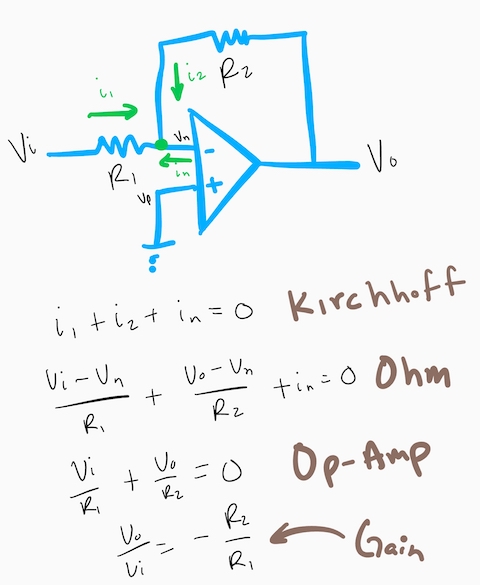 R2
i1
i2
Vi
Vn
-
in
R1
Vp
+
Vo
i1 + i2 + in = 0 Kirchhoff
(Vi - Vn)/R1 + (Vo - Vn)/R2 + in = 0 Ohm
Vi/R1 + Vo/R2 = 0 Op-Amp
Vo/Vi = - R2/R1 Gain